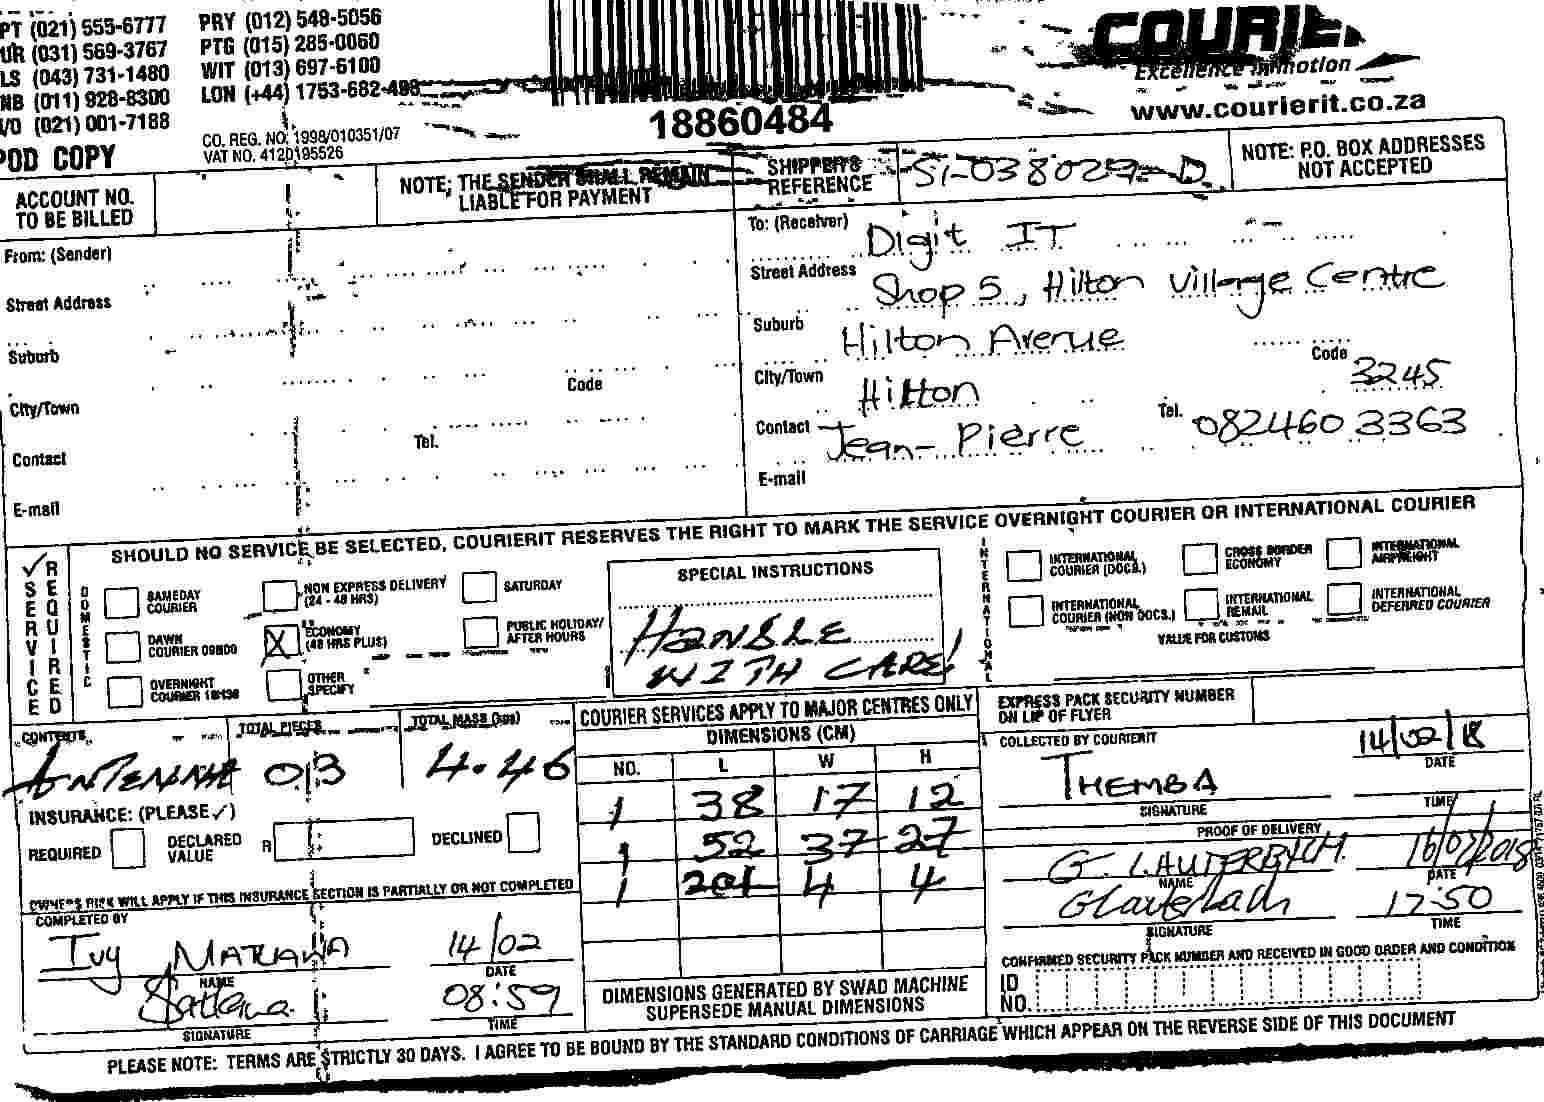 PT (021) 555-6777 PRY (012) 548-5056
UR (031) 569-3767 PTG (015) 285-0060
LS (043) 731-1480 WIT (013) 697-6100
NB (011) 928-8300 LON (+44) 1753-682-498
(021) 001-7188
CO. REG. NO. 1998/010351/07
VAT NO. 4120195526
POD COPY
18860484
COURIE
Excellence in motion
www.courierit.co.za
ACCOUNT NO. TO BE BILLED
NOTE; THE SENDER SHALL REMAIN LIABLE FOR PAYMENT
SHIPPER'S REFERENCE SI-038029-D
NOTE: P.O. BOX ADDRESSES NOT ACCEPTED
From: (Sender)
Street Address
Suburb
Code
City/Town
Tel.
Contact
E-mail
To: (Receiver) Digit IT
Street Address Shop 5, Hilton Village Centre
Suburb Hilton Avenue
Code 3245
City/Town Hilton
Contact Jean-Pierre Tel. 082460 3363
E-mail
SHOULD NO SERVICE BE SELECTED, COURIERIT RESERVES THE RIGHT TO MARK THE SERVICE OVERNIGHT COURIER OR INTERNATIONAL COURIER
SERVICE REQUIRED
DOMESTIC
SAMEDAY COURIER
NON EXPRESS DELIVERY (24 - 48 HRS)
SATURDAY
DAWN COURIER 09H00
X ECONOMY (48 HRS PLUS)
PUBLIC HOLIDAY/ AFTER HOURS
OVERNIGHT COURIER
OTHER SPECIFY
SPECIAL INSTRUCTIONS
HANDLE
WITH CARE!
INTERNATIONAL
INTERNATIONAL COURIER (DOCS.)
CROSS BORDER ECONOMY
INTERNATIONAL AIRFREIGHT
INTERNATIONAL COURIER (NON DOCS.)
INTERNATIONAL REMAIL
INTERNATIONAL DEFERRED COURIER
VALUE FOR CUSTOMS
CONTENTS TOTAL PIECES TOTAL MASS (kgs)
ANTENNAE 03 4.46
INSURANCE: (PLEASE ✓)
REQUIRED DECLARED VALUE R DECLINED
OWNER'S RISK WILL APPLY IF THIS INSURANCE SECTION IS PARTIALLY OR NOT COMPLETED
COMPLETED BY
Ivy 14/02
NAME DATE
08:59
SIGNATURE TIME
COURIER SERVICES APPLY TO MAJOR CENTRES ONLY
DIMENSIONS (CM)
NO. L W H
1 38 17 12
1 52 37 27
1 201 4 4
DIMENSIONS GENERATED BY SWAD MACHINE SUPERSEDE MANUAL DIMENSIONS
EXPRESS PACK SECURITY NUMBER ON LIP OF FLYER
COLLECTED BY COURIERIT 14/02/18
DATE
THEMBA
SIGNATURE TIME
PROOF OF DELIVERY
G. LAUTERBACH 16/02/2018
NAME DATE
GLauterbach 17:50
SIGNATURE TIME
CONFIRMED SECURITY PACK NUMBER AND RECEIVED IN GOOD ORDER AND CONDITION
ID NO.
PLEASE NOTE: TERMS ARE STRICTLY 30 DAYS. I AGREE TO BE BOUND BY THE STANDARD CONDITIONS OF CARRIAGE WHICH APPEAR ON THE REVERSE SIDE OF THIS DOCUMENT